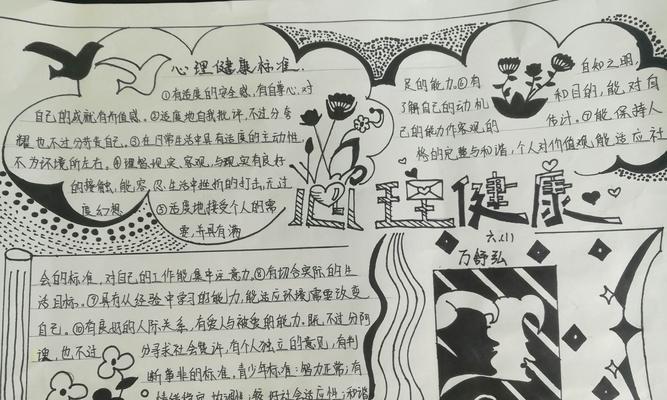 心理健康标准.
①有适度的安全感,有自尊心,对
自己的成就有价值感。②适度地自我批评,不过分夸
耀也不过分苛责自己。③在日常生活中具有适度的主动性,
不为环境所左右。④理智,现实,客观,与现实有良好
的接触,能容忍生活中挫折的打击,无过
度幻想
⑤适度地接受个人的需
要,并具有满
足的能力。⑥有自知之明,
了解自己的动机和目的,能对自
己的能力作客观的估计。⑦能保持人
格的完整与和谐,个人对价值观,能适应社
心理健康
六(1)
万舒弘
会的标准,对自己的工作能集中注意力。⑧有切合实际的生
活目标。⑨具有从经验中学习的能力,能适应环境需要改变
自己。⑩有良好的人际关系,有爱人与被爱的能力。既不过分阿
谀,也不过分寻求社会赞许,有个人独立的意见,有判
断事非的标准。青少年标准:努力正常;有
情绪稳定,协调;较好社会适应性;和谐